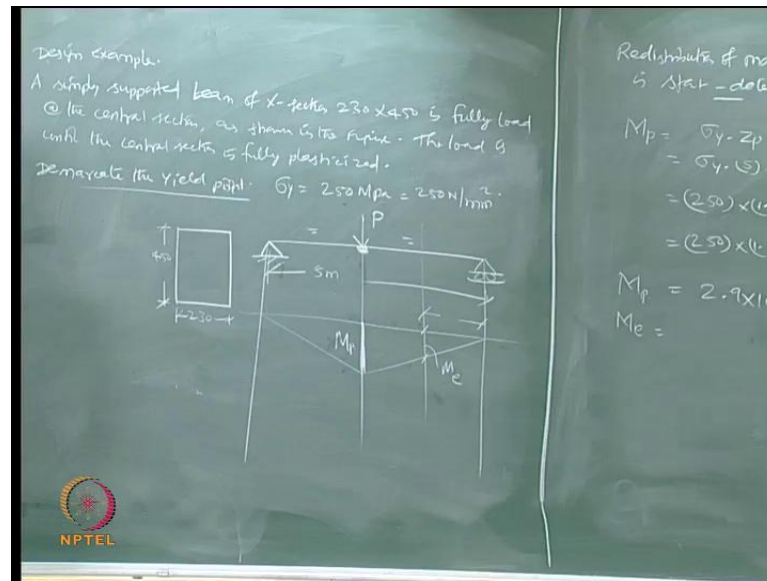 Design example.
A simply supported beam of X-section 230 x 450 is fully load
@ the central section, as shown in the figure. The load is
until the central section is fully plasticized.
Demarcate the yield point. σy = 250 MPa = 250 N/mm².
P
= =
450
5m
230
Mp
Me
Redistribution of mo
is star - dete
Mp = σy. Zp
= σy. (S)
= (250) x (1.
= (250) x (1.
Mp = 2.9x1
Me =
NPTEL